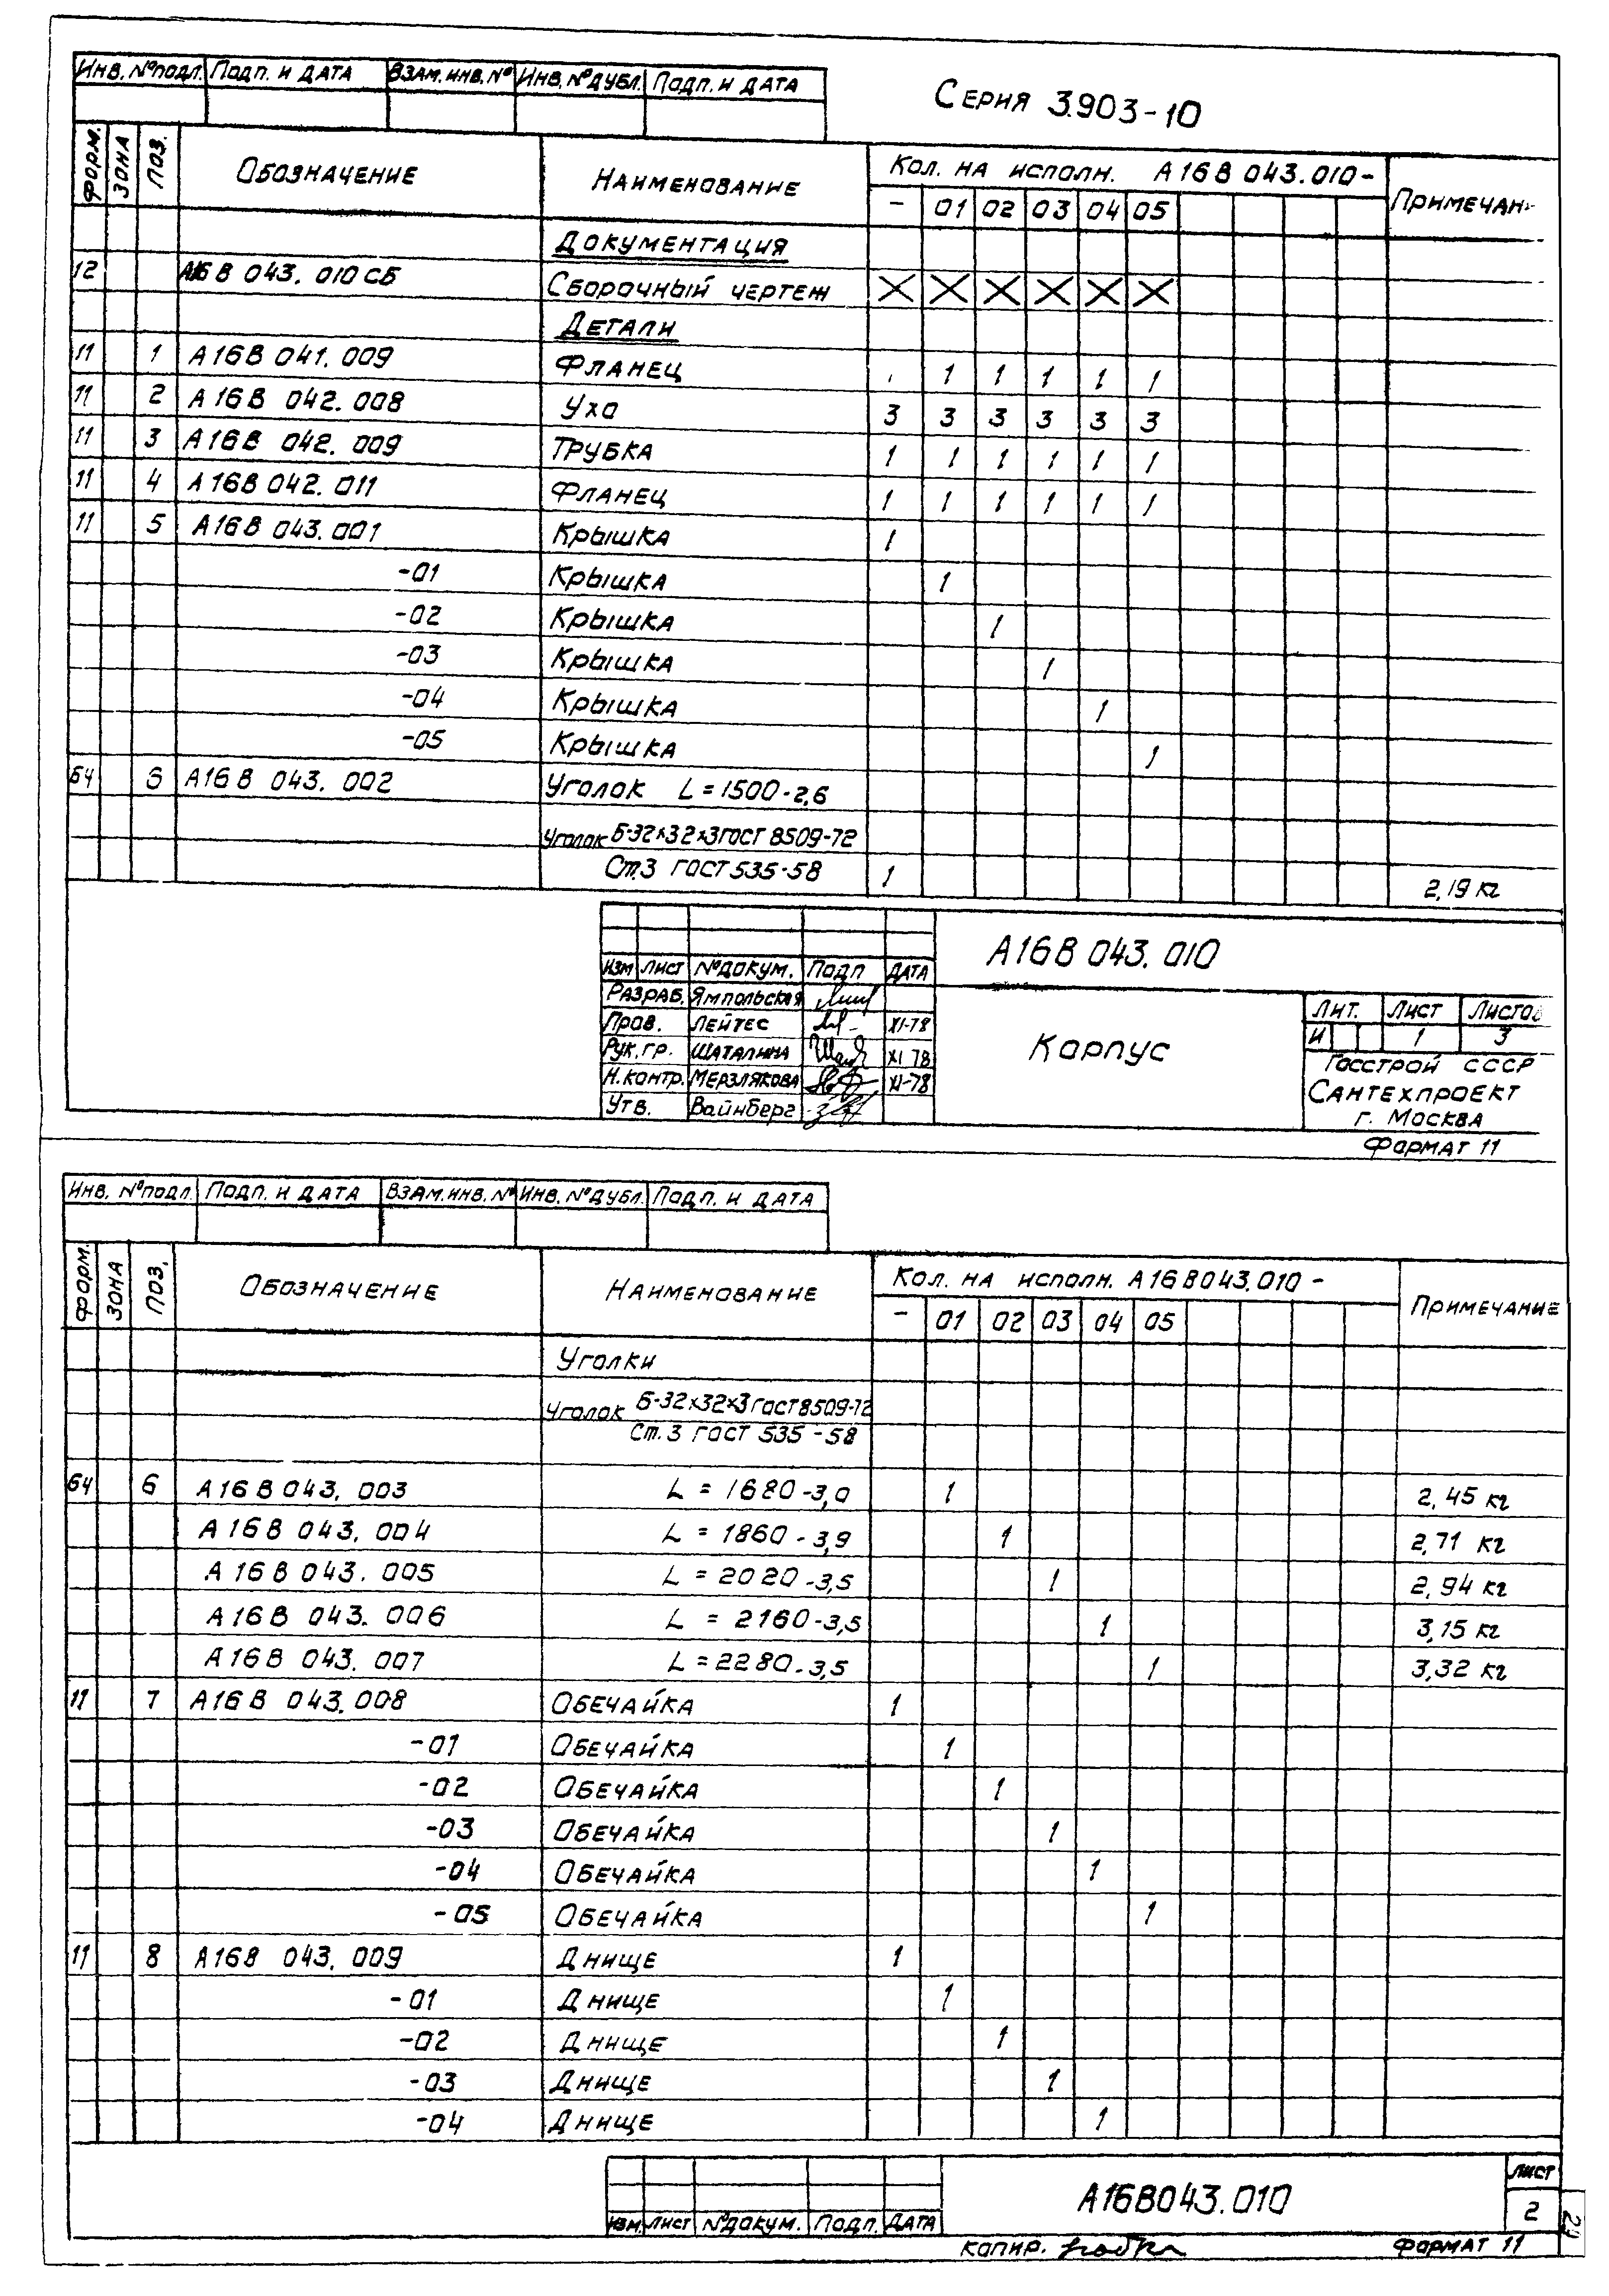 Инв. № подл. Подп. и дата Взам. инв. № Инв. № дубл. Подп. и дата
Серия 3.903-10
Форм. Зона Поз. Обозначение Наименование Кол. на исполн. А16В 043.010- Примечан
- 01 02 03 04 05
Документация
12 А16В 043.010 СБ Сборочный чертеж
Детали
11 1 А16В 041.009 Фланец 1 1 1 1 1
11 2 А16В 042.008 Ухо 3 3 3 3 3 3
11 3 А16В 042.009 Трубка 1 1 1 1 1 1
11 4 А16В 042.011 Фланец 1 1 1 1 1 1
11 5 А16В 043.001 Крышка 1
-01 Крышка 1
-02 Крышка 1
-03 Крышка 1
-04 Крышка 1
-05 Крышка 1
БЧ 6 А16В 043.002 Уголок L=1500-2,6
Уголок Б-32×32×3 ГОСТ 8509-72
Ст.3 ГОСТ 535-58 1 2,19 кг
А16В 043.010
Изм Лист № докум. Подп Дата
Разраб. Ямпольская
Пров. Лейтес XI-78
Рук.гр. Шаталина XI 78
Н.контр. Мерзлякова XI-78
Утв. Вайнберг
Корпус
Лит. Лист Листов
И 1 3
Госстрой СССР
Сантехпроект
г. Москва
Формат 11
Инв. № подл. Подп. и дата Взам. инв. № Инв. № дубл. Подп. и дата
Форм. Зона Поз. Обозначение Наименование Кол. на исполн. А16В043.010- Примечание
- 01 02 03 04 05
Уголки
Уголок Б-32×32×3 ГОСТ 8509-72
Ст.3 ГОСТ 535-58
БЧ 6 А16В043.003 L=1680-3,0 1 2,45 кг
А16В 043.004 L=1860-3,9 1 2,71 кг
А16В 043.005 L=2020-3,5 1 2,94 кг
А16В 043.006 L=2160-3,5 1 3,15 кг
А16В 043.007 L=2280-3,5 1 3,32 кг
11 7 А16В 043.008 Обечайка 1
-01 Обечайка 1
-02 Обечайка 1
-03 Обечайка 1
-04 Обечайка 1
-05 Обечайка 1
11 8 А16В 043.009 Днище 1
-01 Днище 1
-02 Днище 1
-03 Днище 1
-04 Днище 1
Изм. Лист № докум. Подп. Дата
А16В043.010
Лист
2
Копир.
Формат 11